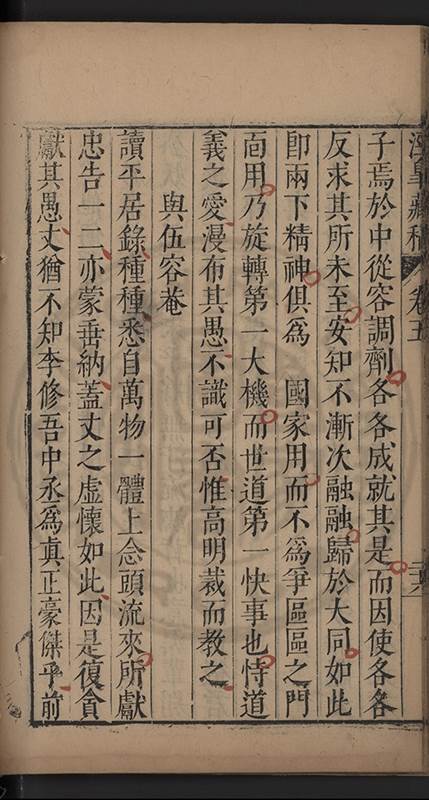 涇臯藏稿 卷五 二六
子焉於中從容調劑各各成就其是而因使各各
反求其所未至安知不漸次融融歸於大同如此
卽兩下精神俱為 國家用而不為爭區區之門
面用乃旋轉第一大機而世道第一快事也恃道
義之愛漫布其愚不識可否惟高明裁而教之
與伍容菴
讀平居錄種種悉自萬物一體上念頭流來所獻
忠告一二亦蒙垂納蓋丈之虛懷如此因是復貪
獻其愚丈猶不知李修吾中丞為真正豪傑乎前